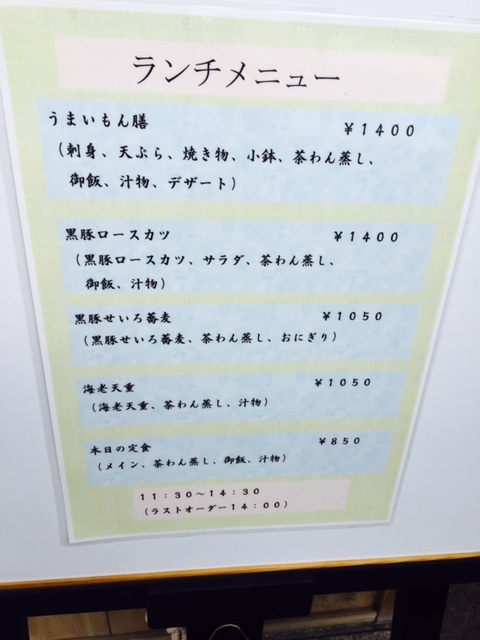 ランチメニュー
うまいもん膳 ￥1400
（刺身、天ぷら、焼き物、小鉢、茶わん蒸し、
御飯、汁物、デザート）
黒豚ロースカツ ￥1400
（黒豚ロースカツ、サラダ、茶わん蒸し、
御飯、汁物）
黒豚せいろ蕎麦 ￥1050
（黒豚せいろ蕎麦、茶わん蒸し、おにぎり）
海老天重 ￥1050
（海老天重、茶わん蒸し、汁物）
本日の定食 ￥850
（メイン、茶わん蒸し、御飯、汁物）
11：30～14：30
（ラストオーダー14：00）